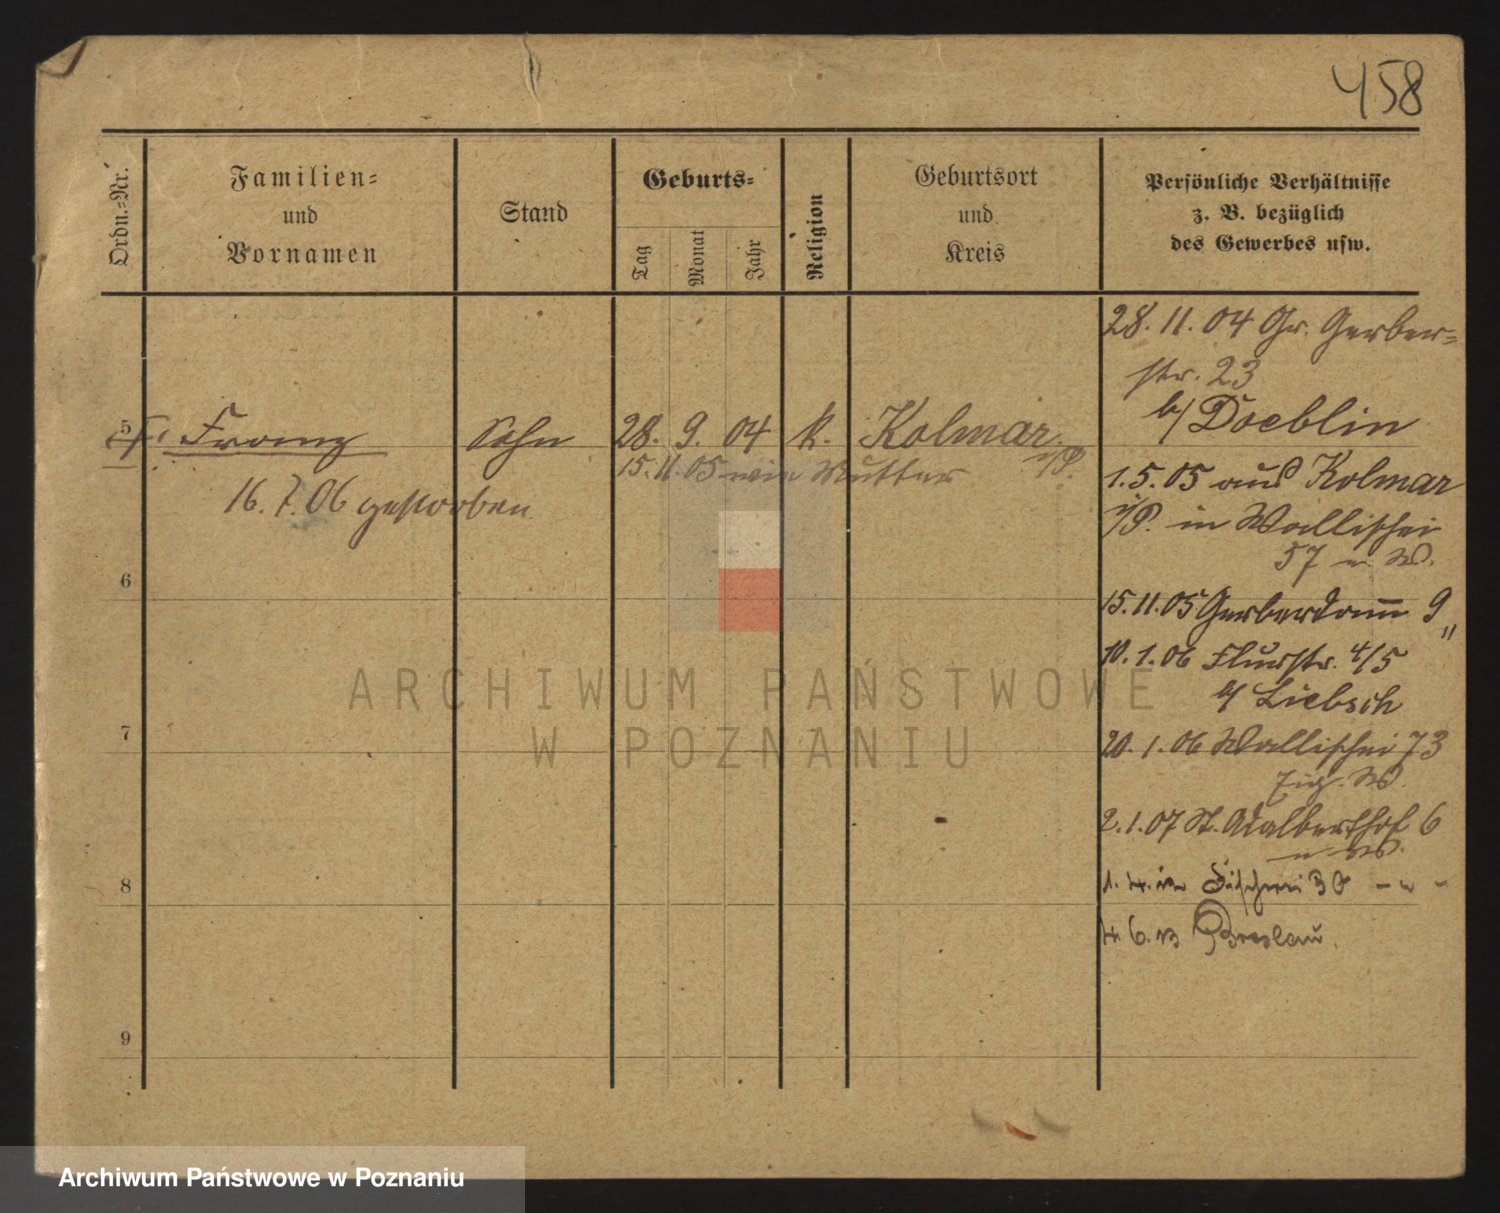 458
Ordn.-Nr.
Familien-
und
Vornamen
Stand
Geburts-
Tag
Monat
Jahr
Religion
Geburtsort
und
Kreis
Persönliche Verhältnisse
z. B. bezüglich
des Gewerbes usw.
28. 11. 04 Gr. Gerber-
str. 23
b/ Doeblin
5 Franz Sohn 28. 9. 04 k. Kolmar
i/P.
15. 11. 05 wie Mutter
16. 7. 06 gestorben
1. 5. 05 aus Kolmar
i/P. in Wallischei
57 u. W.
6
15. 11. 05 Gerberdamm 9
10. 1. 06 Flurstr. 4/5
b/ Liebsch
7
20. 1. 06 Wallischei 73
Eig. W.
2. 1. 07 St. Adalberthof 6
8
Fischerei
Breslau.
9
ARCHIWUM PAŃSTWOWE
W POZNANIU
Archiwum Państwowe w Poznaniu